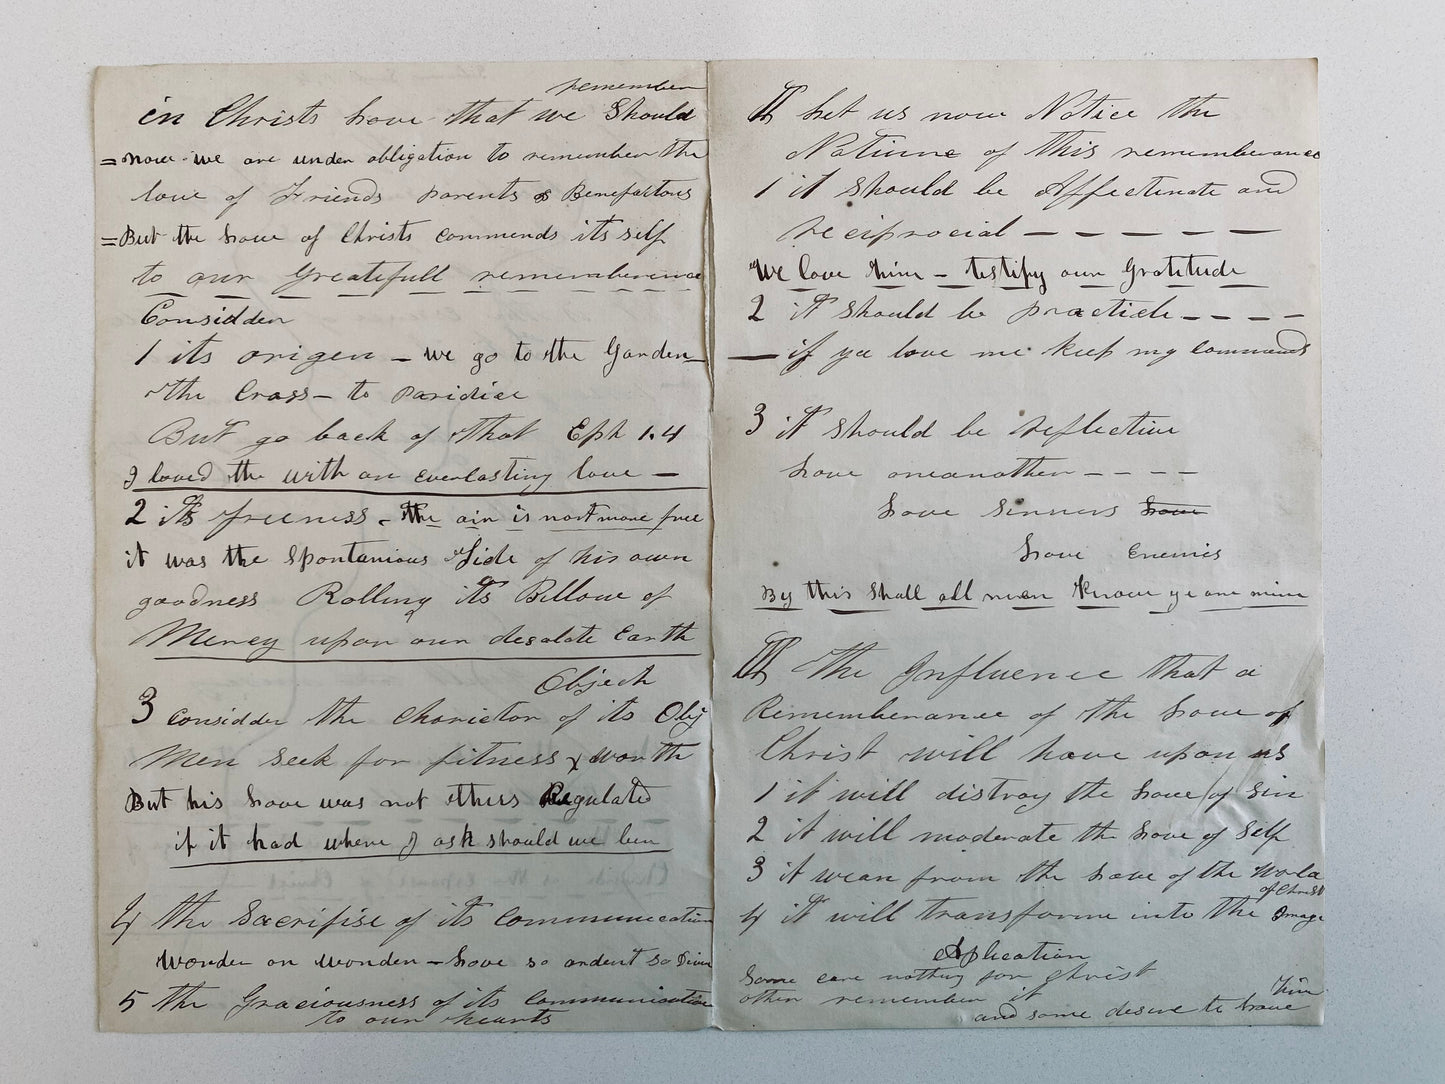 remember
in Christs Love that we Should
= now we are under obligation to remember the
love of Friends parents & Benefactors
= But the Love of Christs commends its self
to our Greatefull rememberence
Considder
1 its origen – we go to the Garden –
the Cross – to Paridice
But go back of that Eph 1.4
I loved the with an everlasting love –
2 its freeness – the air is nort more free
it was the Spontanious Tide of his own
goodness Rolling its Billow of
Mercy upon our desolate Earth
Object
3 consider the charictor of its Obj
Men Seek for fitness & worth
But his Love was not thus Regulated
if it had where I ask should we been
4 the Sacrifise of its Communication
Wonder on wonder – Love so ardent so Divin
5 the Graciousness of its Communication
to our hearts
II Let us now Notice the
Naturee of this rememberance
1 it should be Affectinate and
reciprocial – – – – – –
"We love him – testify our Gratitude
2 it should be practicle – – – –
– if ye love me keep my commands
3 it should be reflective
Love oneanother – – – –
Love Sinners Love
Love Enemies
By this shall all men know ye are mine
III the Influence that a
Rememberance of the Love of
Christ will have upon us
1 it will distroy the Love of Sin
2 it will moderate the Love of Self
3 it wean from the Love of the World
of Christ
4 it will transforme into the Image
Aplication
Some care nothing for Christ
other remember it
him
and some desire to Love